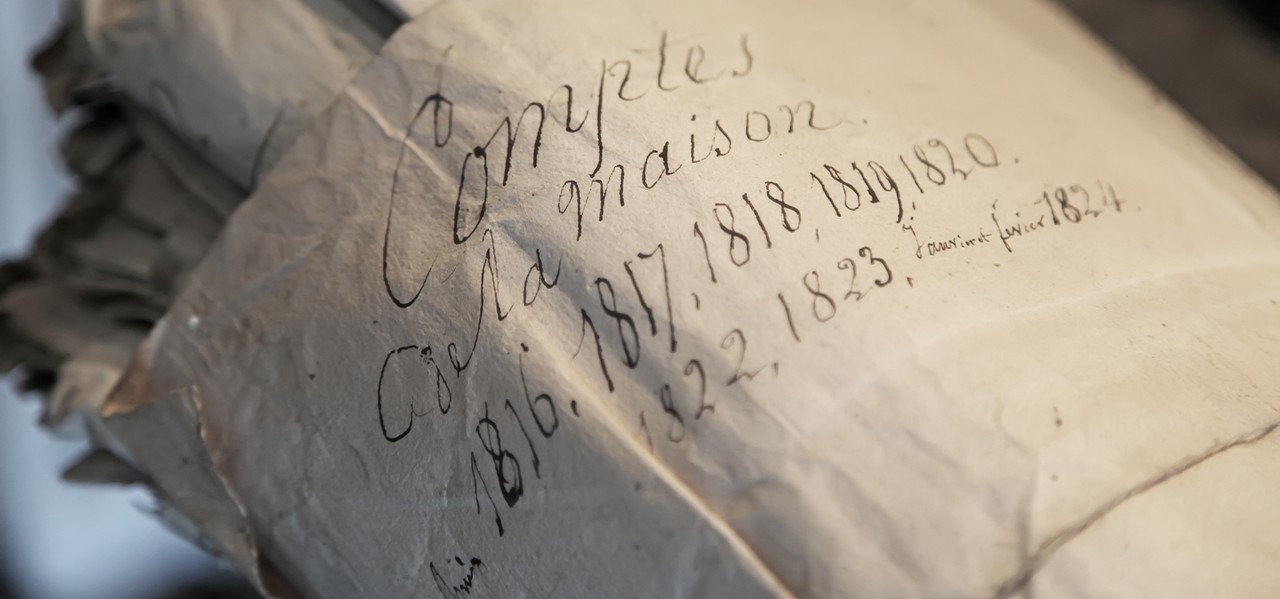 Comptes
de la maison.
1816. 1817. 1818, 1819, 1820.
1822. 1823. Janvier et fevrier 1824.